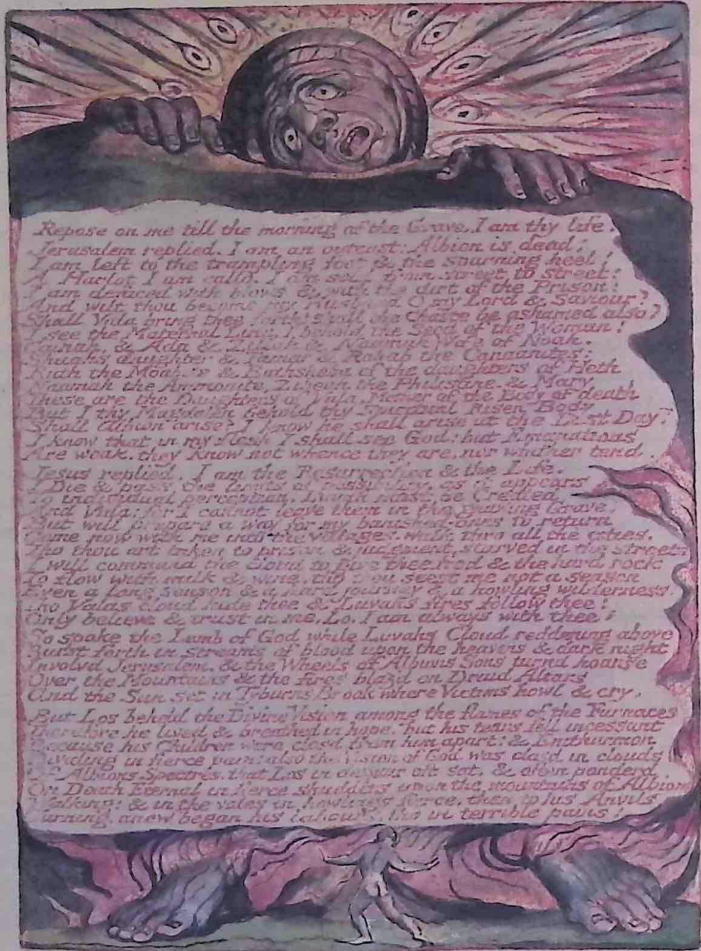 Repose on me till the morning of the Grave. I am thy life.
Jerusalem replied. I am an outcast: Albion is dead!
I am left to the trampling foot & the spurning heel!
A Harlot I am calld. I am sold from street to street!
I am defaced with blows & with the dirt of the Prison!
And wilt thou become my Husband O my Lord & Saviour?
Shall Vala bring thee forth! shall the Chaste be ashamed also?
I see the Maternal Line, I behold the Seed of the Woman!
Cainah, & Ada & Zillah & Naamah Wife of Noah.
Shuahs daughter & Tamar & Rahab the Canaanites:
Ruth the Moabite & Bathsheba of the daughters of Heth
Naamah the Ammonite, Zibeah the Philistine, & Mary
These are the Daughters of Vala, Mother of the Body of death
But I thy Magdalen behold thy Spiritual Risen Body
Shall Albion arise? I know he shall arise at the Last Day!
I know that in my flesh I shall see God: but Emanations
Are weak. they know not whence they are, nor whither tend.
Jesus replied. I am the Resurrection & the Life.
I Die & pass the limits of possibility, as it appears
To individual perception. Luvah must be Created
And Vala; for I cannot leave them in the gnawing Grave.
But will prepare a way for my banished-ones to return
Come now with me into the villages. walk thro all the cities.
Tho thou art taken to prison & judgment, starved in the streets
I will command the cloud to give thee food & the hard rock
To flow with milk & wine, tho thou seest me not a season
Even a long season & a hard journey & a howling wilderness!
Tho Valas cloud hide thee & Luvahs fires follow thee!
Only believe & trust in me, Lo. I am always with thee!
So spoke the Lamb of God while Luvahs Cloud reddening above
Burst forth in streams of blood upon the heavens & dark night
Involvd Jerusalem. & the Wheels of Albions Sons turnd hoarse
Over the Mountains & the fires blazd on Druid Altars
And the Sun set in Tyburns Brook where Victims howl & cry.
But Los beheld the Divine Vision among the flames of the Furnaces
Therefore he lived & breathed in hope. but his tears fell incessant
Because his Children were closd from him apart: & Enitharmon
Dividing in fierce pain: also the Vision of God was closd in clouds
Of Albions Spectres, that Los in despair oft sat, & often ponderd
On Death Eternal in fierce shudders upon the mountains of Albion
Walking: & in the vales in howlings fierce, then to his Anvils
Turning, anew began his labours, tho in terrible pains!